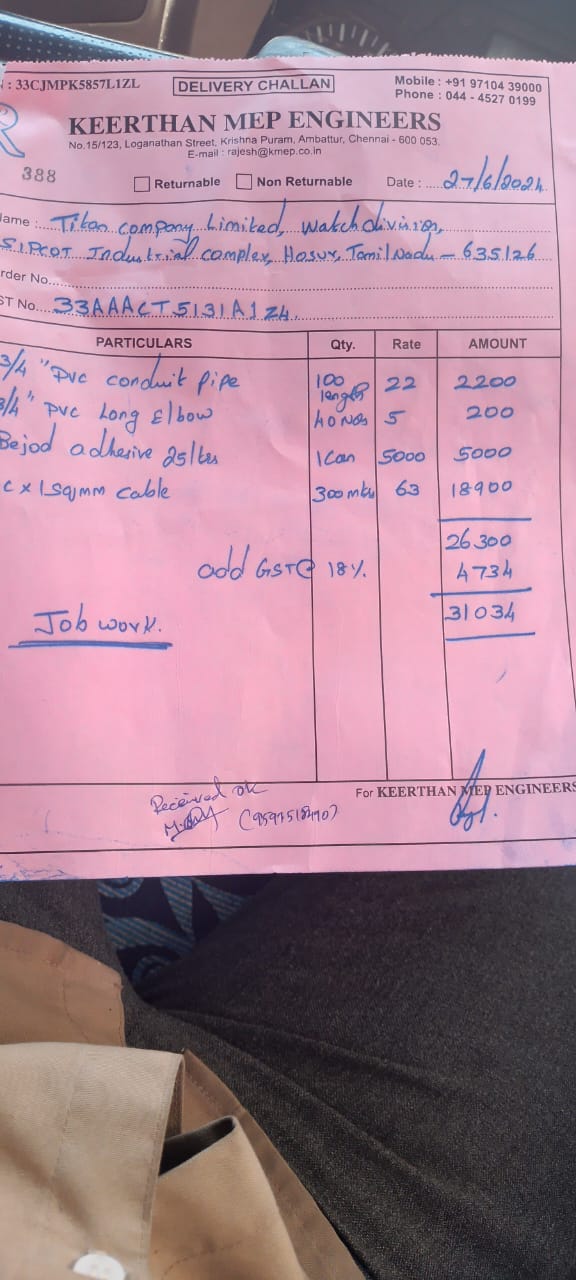 : 33CJMPK5857L1ZL
DELIVERY CHALLAN
Mobile : +91 97104 39000
Phone : 044 - 4527 0199
KEERTHAN MEP ENGINEERS
No.15/123, Loganathan Street, Krishna Puram, Ambattur, Chennai - 600 053.
E-mail : rajesh@kmep.co.in
388
Returnable Non Returnable Date : 27/6/2024
ame : Titan company Limited, watch division,
SIPCOT Industrial complex, Hosur, Tamil Nadu - 635126
rder No.
ST No. 33AAACT5131A1Z4.
PARTICULARS Qty. Rate AMOUNT
3/4 " PVC conduit pipe 100 length 22 2200
3/4" PVC Long Elbow 40 Nos 5 200
adhesive 25 ltrs 1 Can 5000 5000
C x 1 Sqmm Cable 300 mtrs 63 18900
26300
add GST@ 18%. 4734
31034
Job work.
Received ok
For KEERTHAN MEP ENGINEERS